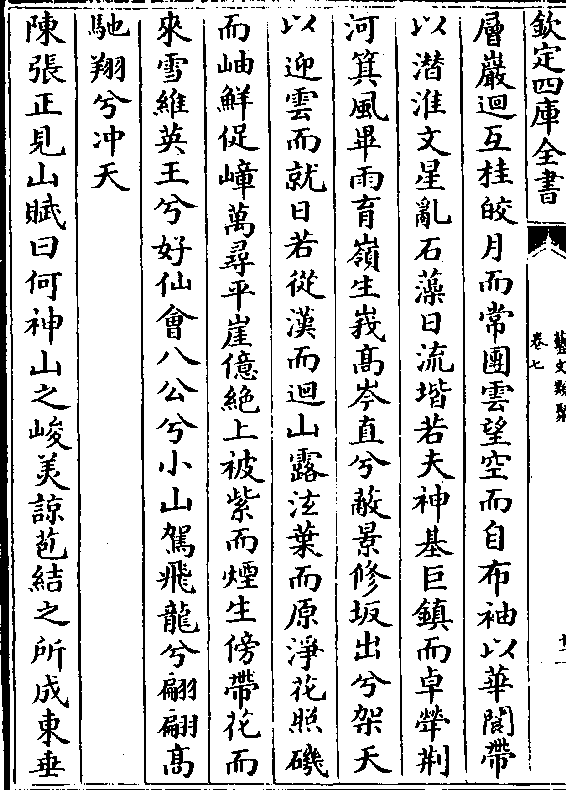 欽定四庫全書
藝文類聚
卷七
層巖迴互桂皎月而常團雲望空而自布袖以華閣帶
以潛淮文星亂石藻日流堦若夫神基巨鎮而卓犖荆
河箕風畢雨育嶺生峩髙岑直兮蔽景修坂出兮架天
以迎雲而就日若從漢而迴山露泫葉而原淨花照磯
而岫鮮促嶂萬尋平崖億絶上被紫而煙生傍帶花而
來雪維英王兮好仙會八公兮小山駕飛龍兮翩翩髙
馳翔兮冲天
陳張正見山賦曰何神山之峻美諒苞結之所成東垂